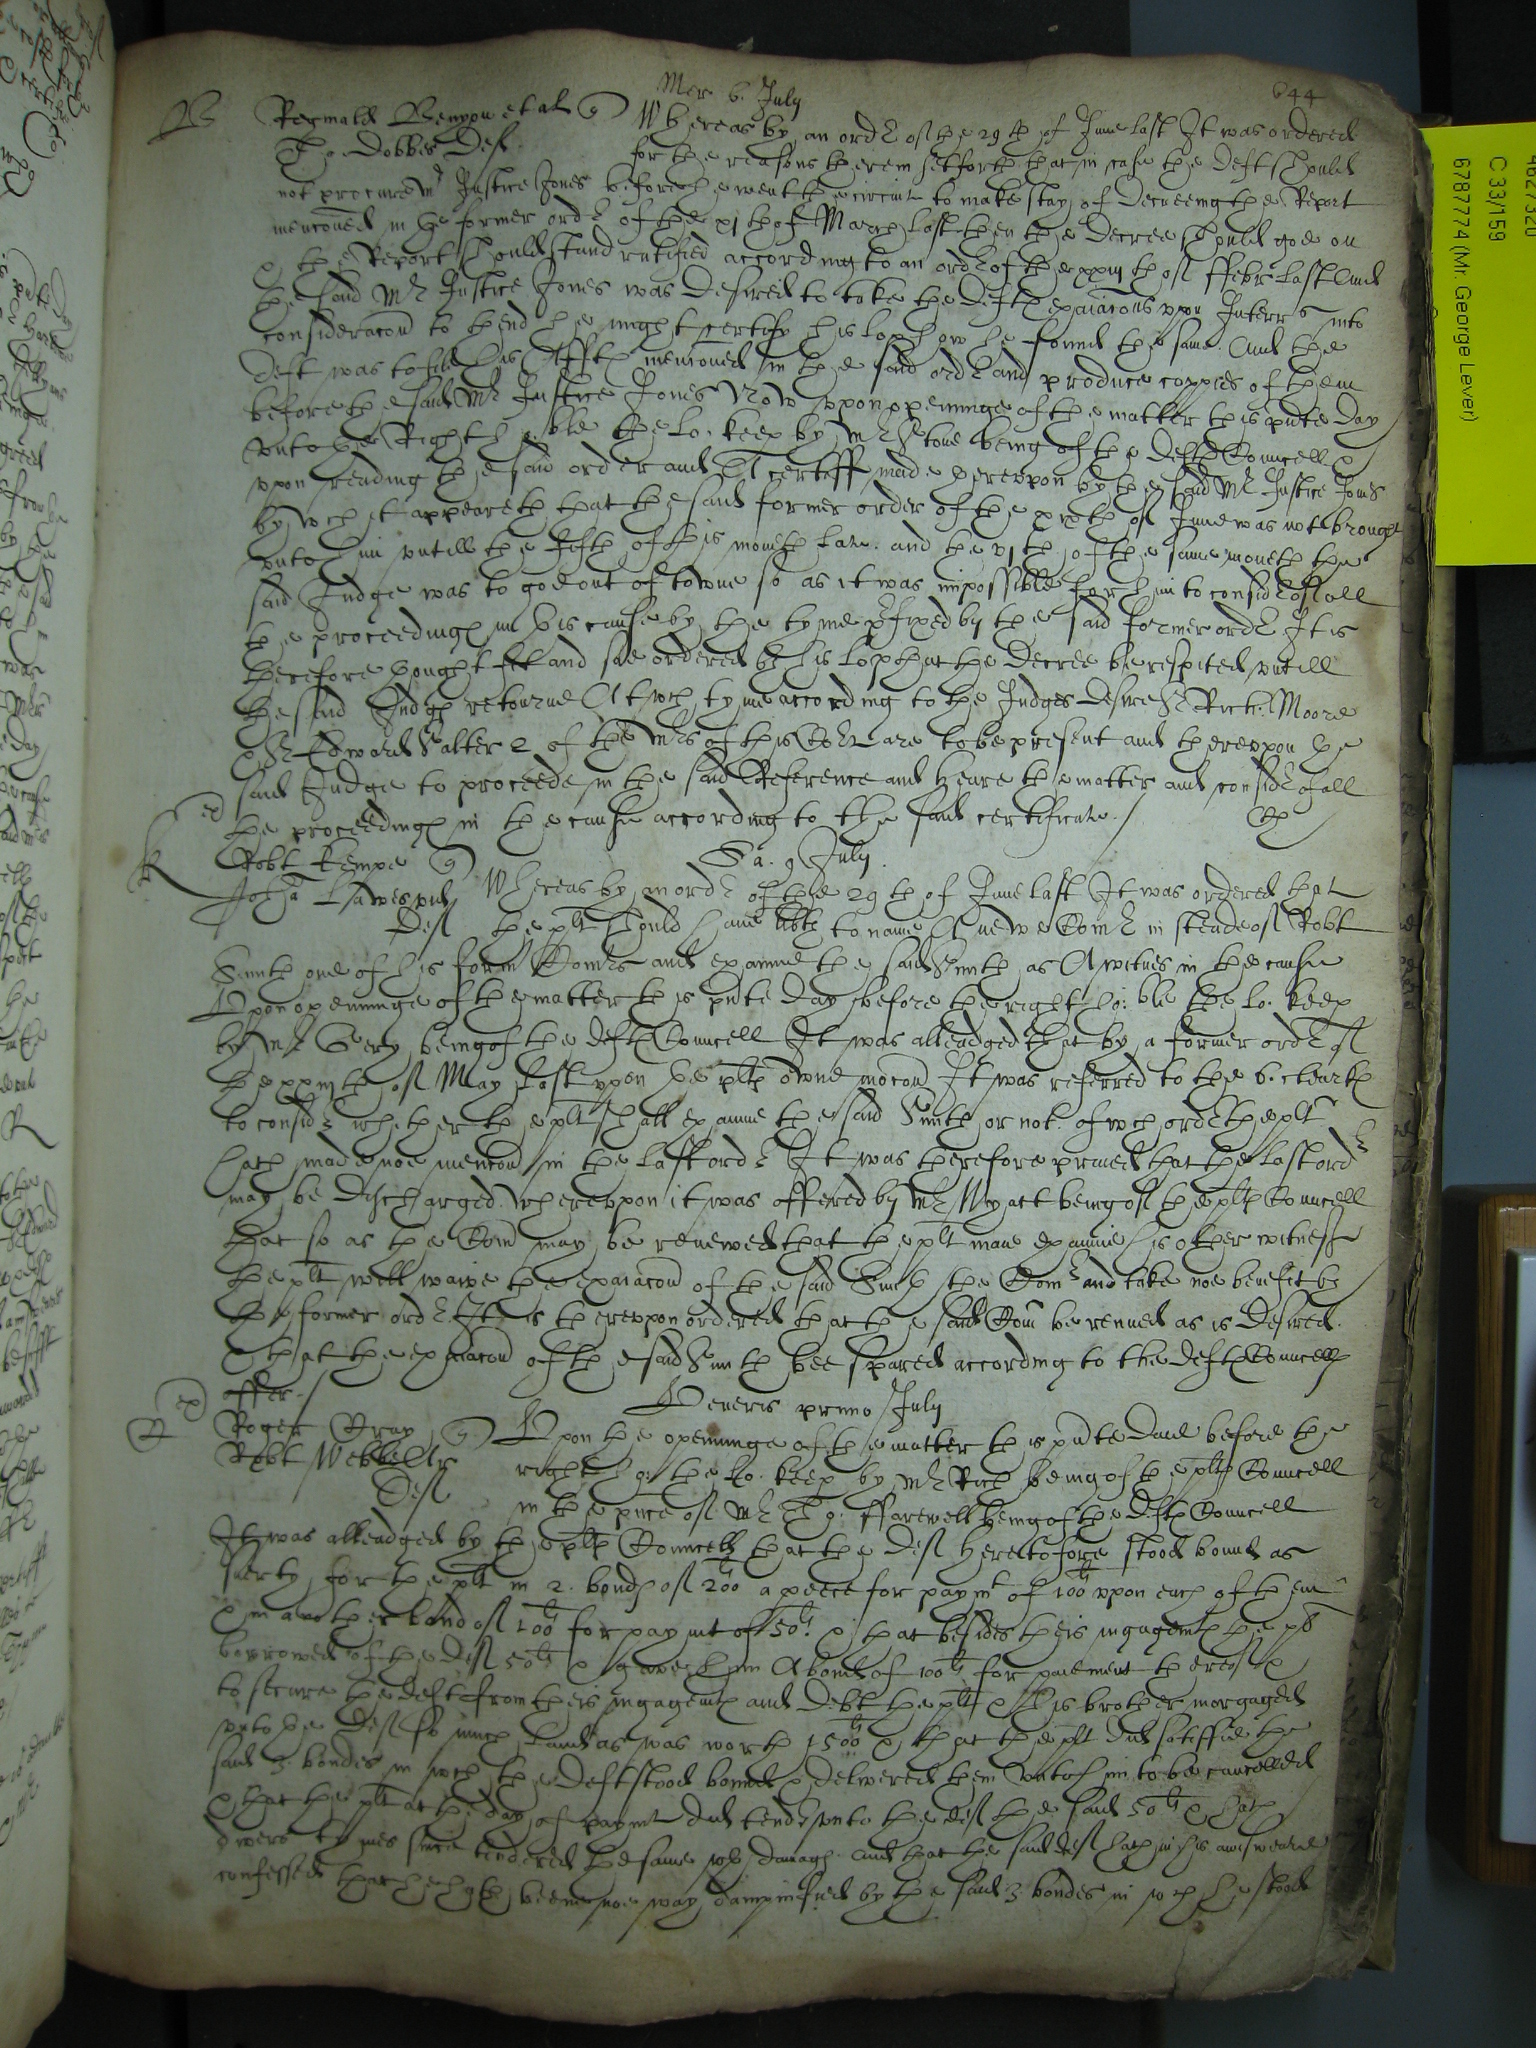 644
Mer 6. July
B Reginald Benyon et al q Whereas by an ordr of the 29th of June last It was ordered
Tho Dobbes Deft for the reasons therein setforth that in case the deft should
not procure Mr Justice Jones before he went the circuit to make stay of decreeing the Report
mencioned in the former ordr of the xjth of March last then the decree should goe on
& the Report should stand ratified according to an ordr of the xxiijth of ffebr last And
the said Mr Justice Jones was desired to take the defts exaiacons vpon Interrs into
consideracon to thend he might certify his lop how he found the same. And the
deft was to file his Affts mencioned in the said ordr and produce coppies of them
before the said Mr Justice Jones Now vpon openinge of the matter this pnte day
vnto the Right hoble the lo. keep by Mr Stone being of the defts Councell &
vpon reading the said order and A certiff made therevpon by the said Mr Justice Jones
by wch it appeareth that the said former order of the xxixth of June was not brought
vnto him vntill the fifth of this moneth late. and the vjth of the same moneth the
said Judge was to goe out of towne so as it was impossible for him to considr of all
the proceedings in this cause by the tyme prfixed by the said former ordr It is
therefore thought fitt and soe ordered by his lop that the decree be respited vntill
the said Judgs retourne At wch tyme according to the Judges desire Sr Rich: Moore
& Sr Edward Salter 2 of the Mrs of this Cort are to be present and therevpon the
said Judge to proceede in the said Reference and heare the matter and considr of all
the proceedings in the cause according to the said certificate./
Sa. 9 July
K ex Robt Kempe q Whereas by an ordr of the 29th of June last It was ordered that
Deft the plt should haue libty to name A newe Comr in steade of Robt
Smith one of his formr Comrs and examine the said Smith as A witnes in the cause
Vpon openinge of the matter this pnte day before the right ho:ble the lo. keep
by Mr Gery being of the defts Councell It was alleadged that by a former ordr of
the xxiijth of May last vpon the plts owne mocon It was referred to the 6. clearks
to considr whether the plt shall examine the said Smith or not. of wch ordr the plt
hath made noe mencon in the last ordr It was therefore praied that the last ordr
may be discharged. wherevpon it was offered by Mr Myatt being of the plts Councell
that so as the Com may be renewed that the plt maie examine his other witnesses
the plt will waive the exaiacon of the said Smith the Comr and take noe benefit by
the former ordr It is therevpon ordered that the said Com be renued as is desired.
& that the exaiacon of the said Smith bee spared according to the defts Councells
offer./
Veneris primo July
G ex Roger Gray q Vpon the openinge of the matter this pnte daie before the
Robt Webbe right ho: the lo. keep by Mr Rich being of the plts Councell
Deft in the pnce of Mr Tho: ffarewell being of the defts Councell
It was alleadged by the plts Councell that the deft heretofore stood bound as
suerty for the plt in 2. bonds of 200li a peece for paymt of 100li vpon each of them
& in another bond of 100li for paymt of 50li. & that besides theis ingagemts the plt
borrowed of the deft 50li & gave him A bond of 100li for paiement thereof &
to secure the deft from theis ingagemts and debt the plt & his brother morgaged
vnto the deft so much Land as was worth 1500li & that the plt did satisfie the
said 3. bondes in wch the deft stood bound & delivered them vnto him to be cancelled
& that the plt at the day of paymt did tendr vnto the deft the said 50li & hath
divers tymes since tendered the same wth damags. and that the said deft hath in his answeare
confessed that he hath beene noe way dampnified by the said 3. bondes in wch he stood
C 33/159
6787774 (Mr. George Lever)